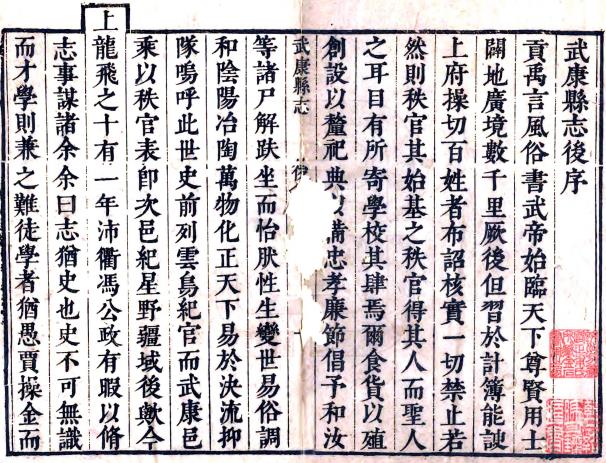 武康縣志後序
貢禹言風俗書武帝始臨天下尊賢用士
闢地廣境數千里厥後但習於計簿能諛
上府操切百姓者布詔核實一切禁止若
然則秩官其始基之秩官得其人而聖人
之耳目有所寄學校其肆焉爾食貨以殖
創設以釐祀典以備忠孝廉節倡予和汝
武康縣志
等諸尸解趺坐而怡肰性生變世易俗調
和陰陽冶陶萬物化正天下易於決流抑
隊嗚呼此世史前列雲鳥紀官而武康邑
乘以秩官表卽次邑紀星野疆域後歟今
上龍飛之十有一年沛衢馮公政有暇以脩
志事謀諸余余曰志猶史也史不可無識
而才學則兼之難徒學者猶愚賈操金而